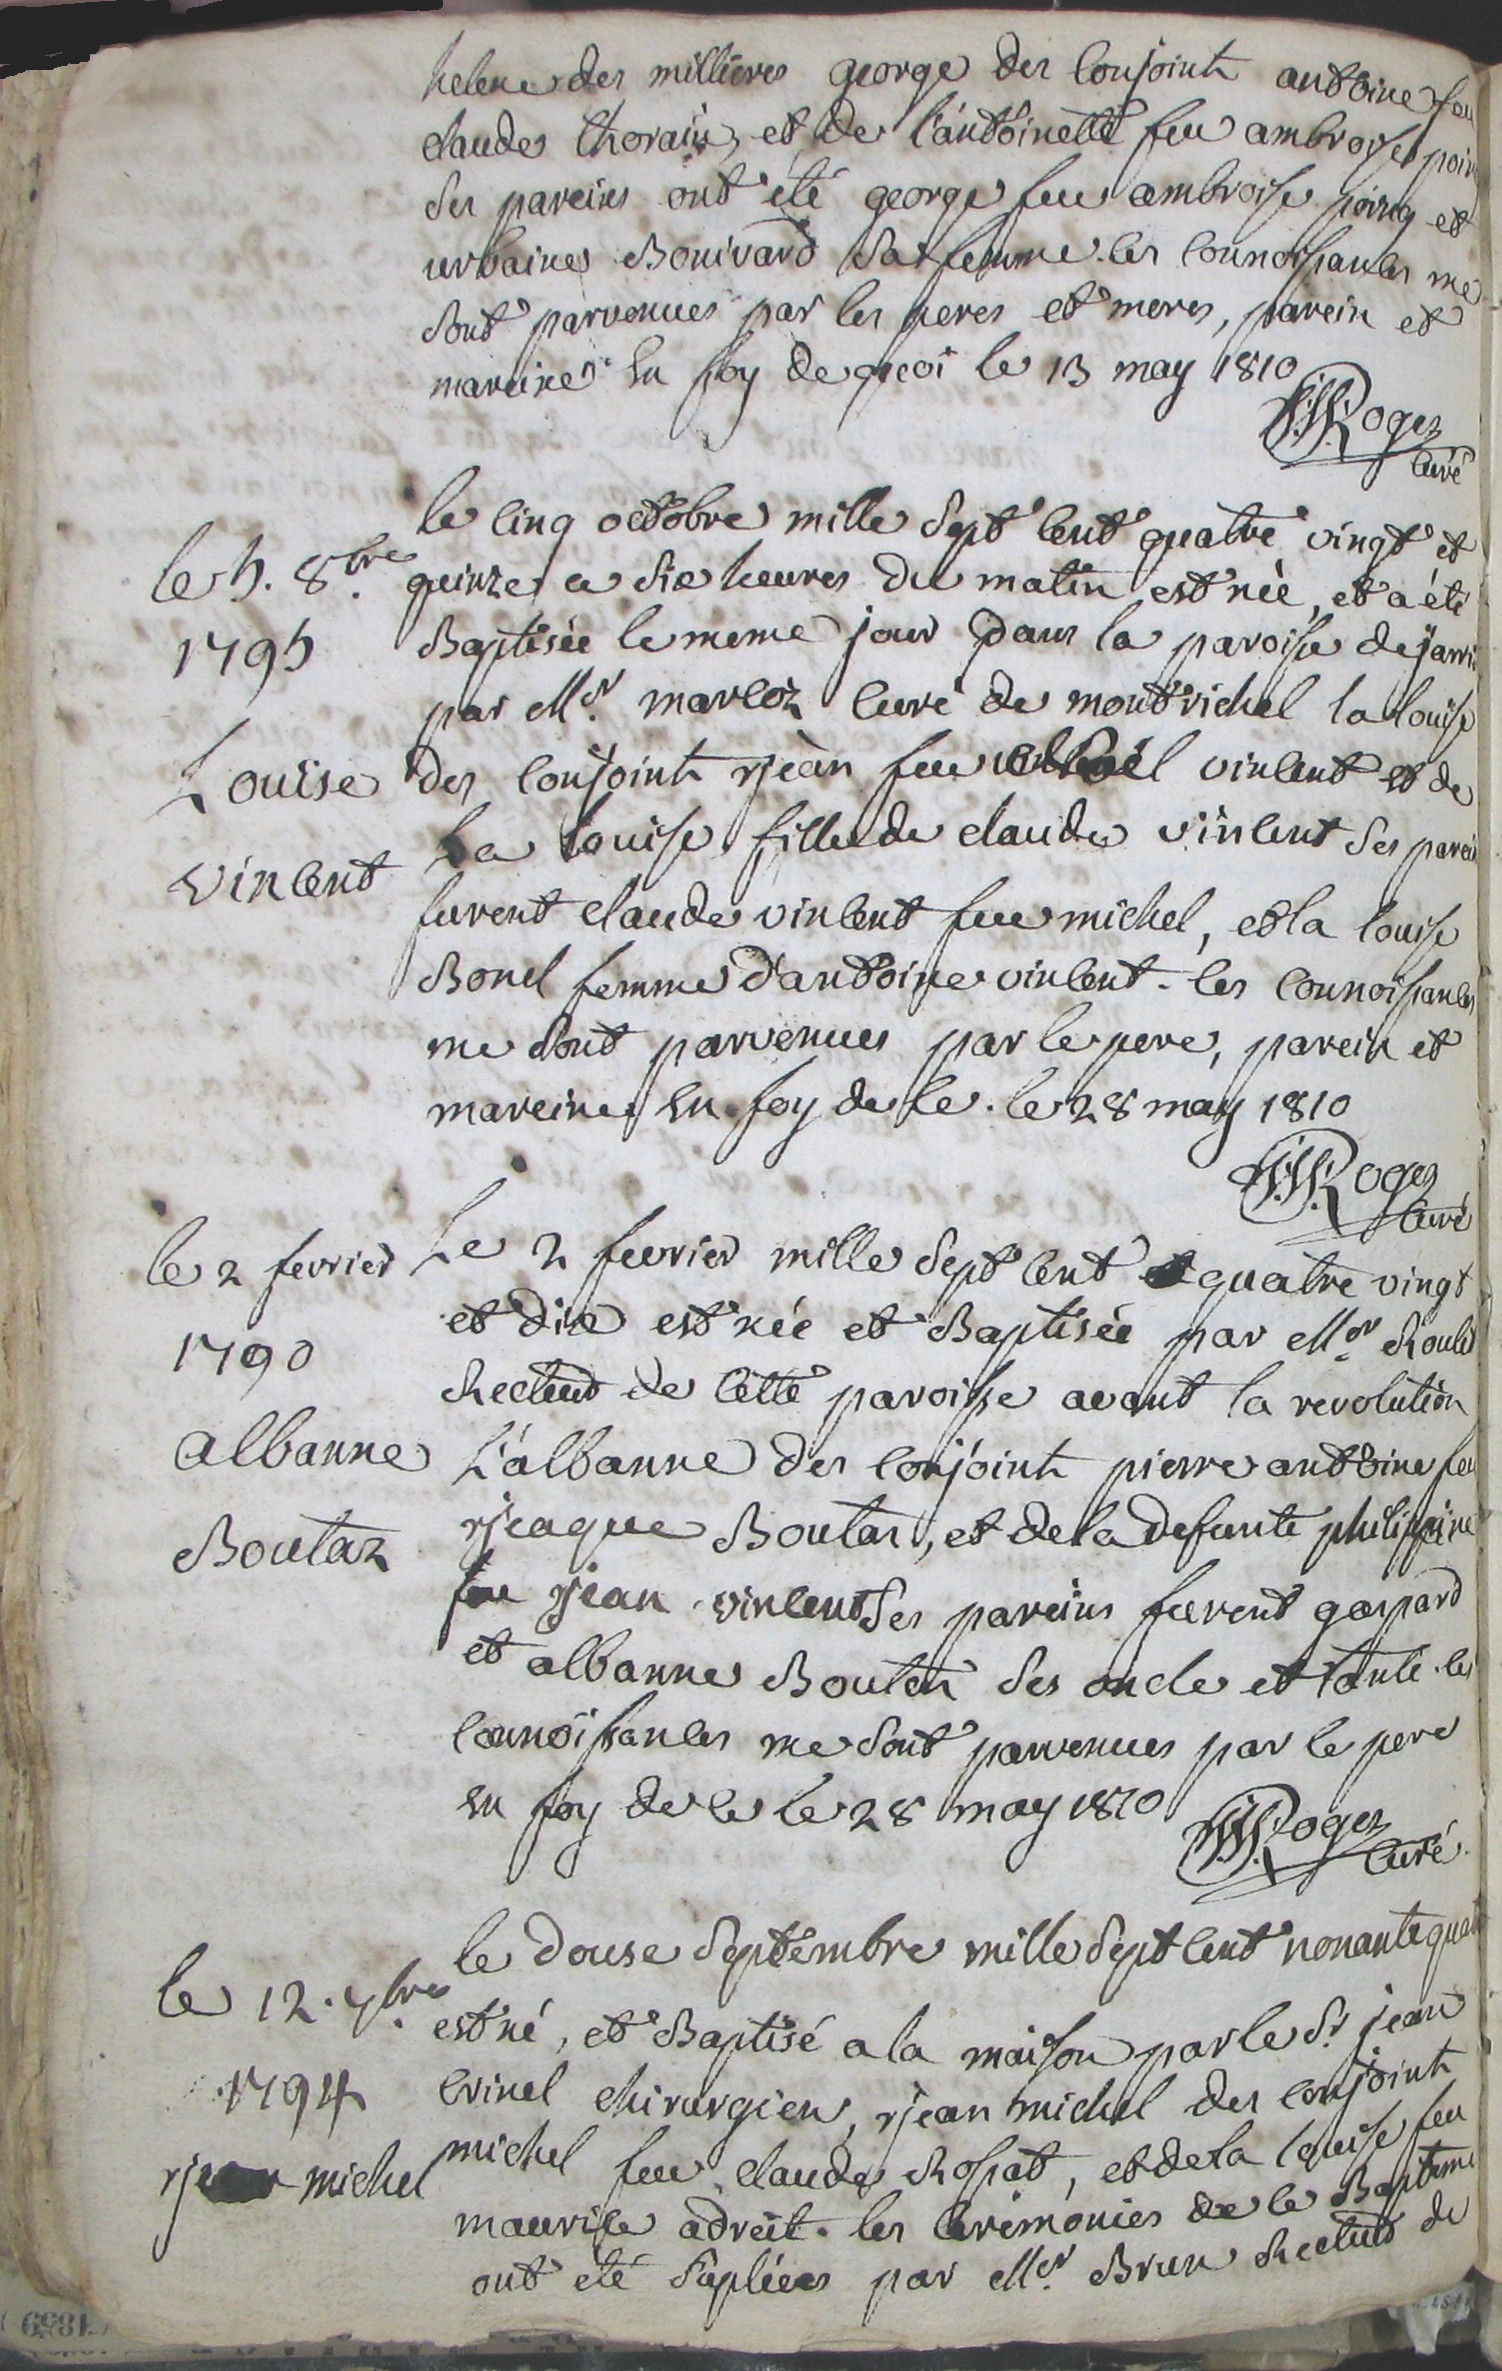 helene des millieres george des conjoint antoine feu
claude thorain, et de l'antoinette feu ambroise
Ses pareins ont été george feu ambroise et
urbaine Bonivard Sa femme. les connoissances me
Sont parvenues par les peres et meres, parein et
mareine. En foy de quoi le 13 may 1810
Roger
Curé
le cinq octobre mille Sept Cent quatre vingt et
le 5. 8.bre
quinze a Six heures du matin est née, et a été
1795
Baptisée le meme jour Dans la paroisse de jarri
par Mr. marcoz Curé de montrichel la louise
Louise
des conjoint jean feu vincent et de
la louise fille de claude vincent Ses parein
vincent
furent claude vincent feu michel, et la louise
Bonel femme d'antoine vincent. les connoissances
me Sont parvenues par le pere, parein et
mareine En foy de ce. le 28 may 1810
Roger
Curé
le 2 fevrier
Le 2 fevrier mille Sept Cent quatre vingt
et dix est née et Baptisée par Mr.
1790
Recteur de Cette paroisse avant la revolution
albanne
L'albanne des conjoint pierre antoine feu
Boutaz
jeaque Boutaz, et de la defunte philippine
feu jean vincent Ses pareins furent gaspard
et albanne Boutaz Ses oncle et tante. les
connoissances me Sont parvenues par le pere
En foy de ce le 28 may 1810
Roger
Curé
le douse Septembre mille Sept Cent nonante quat
le 12. 7.bre
est né, et Baptisé a la maison par le Sr. jean
1794
crinel chirurgien, jean michel des conjoint
jean michel
michel feu claude Rossat, et de la louise feu
maurise adreit. les Ceremonies de ce Bapteme
ont été Suplées par Mr. Brun Recteur de